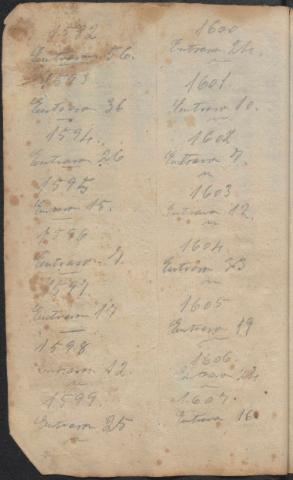 1592
Entraron 56.
1593
Entraron 36
1594.
Entraron 26
1595
Entraron 15.
1596
Entraron
1597
Entraron 17
1598
Entraron 22.
1599.
Entraron 25
1600
Entraron
1601.
Entraron 10.
1602
Entraron 7.
1603
Entraron 12.
1604.
Entraron 23
1605
Entraron 19
1606
Entraron
1607.
Entraron 16